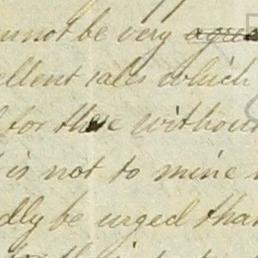 nnot be very
ellent rules which
for these without
is not to mine
dly be urged that